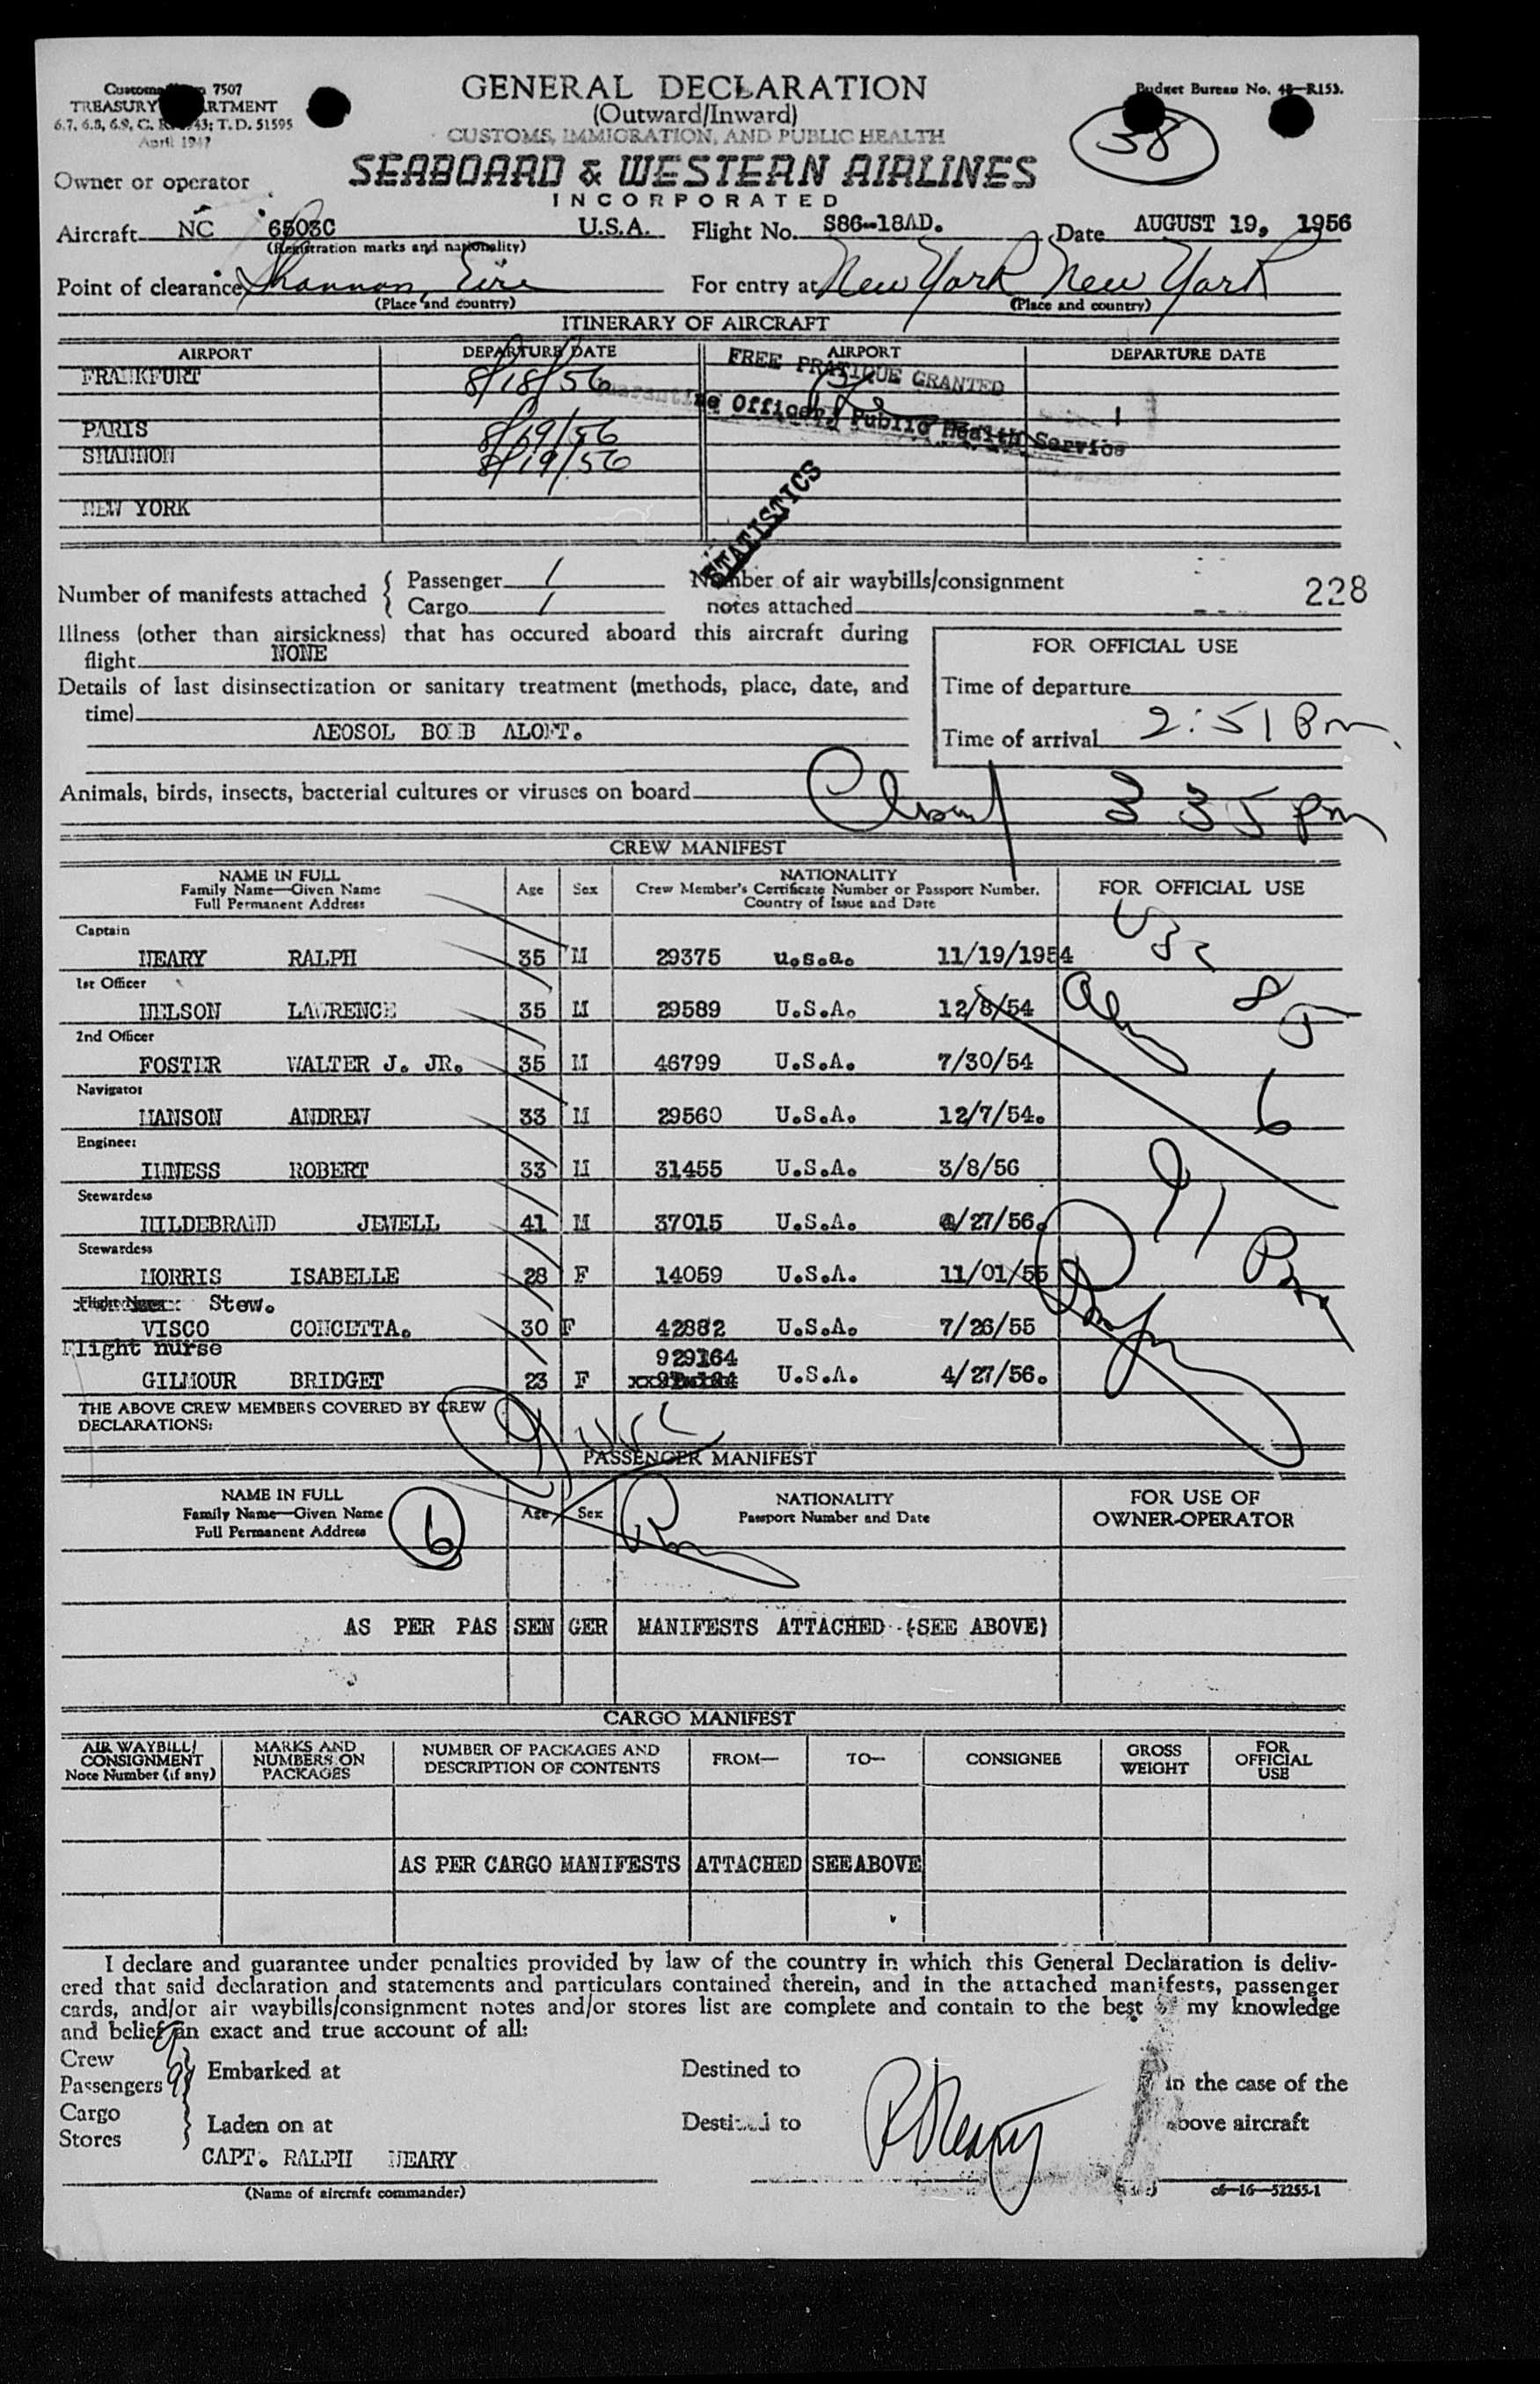 GENERAL DECLARATION
(Outward/Inward)
CUSTOMS, IMMIGRATION, AND PUBLIC HEALTH
Customs 7507
TREASURY
6.7, 6.8, 6.9, C. R. 943; T.D. 51595
April 1947
Budget Bureau No. 48-R153.
38
Owner or operator SEABOARD & WESTERN AIRLINES
INCORPORATED
Aircraft NC 6503C U.S.A. Flight No. S86-18AD. Date AUGUST 19, 1956
(Registration marks and nationality)
Point of clearance Shannon, Eire For entry at New York New York
(Place and country) (Place and country)
ITINERARY OF AIRCRAFT
AIRPORT DEPARTURE DATE AIRPORT DEPARTURE DATE
FRANKFURT 8/18/56
PARIS 8/19/56
SHANNON 8/19/56
NEW YORK
FREE PRATIQUE GRANTED
Quarantine Officer, Public Health Service
STATISTICS
Number of manifests attached { Passenger 1
Cargo 1
Number of air waybills/consignment
notes attached
228
Illness (other than airsickness) that has occured aboard this aircraft during
flight NONE
Details of last disinsectization or sanitary treatment (methods, place, date, and
time)
AEOSOL BOMB ALOFT.
FOR OFFICIAL USE
Time of departure
Time of arrival 2:51 Pm
Animals, birds, insects, bacterial cultures or viruses on board
335 pm
CREW MANIFEST
NAME IN FULL
Family Name—Given Name
Full Permanent Address
Age Sex
NATIONALITY
Crew Member's Certificate Number or Passport Number.
Country of Issue and Date
FOR OFFICIAL USE
Captain
NEARY RALPH 35 M 29375 u.s.a. 11/19/1954
1st Officer
NELSON LAURENCE 35 M 29589 U.S.A. 12/8/54
2nd Officer
FOSTER WALTER J. JR. 35 M 46799 U.S.A. 7/30/54
Navigator
MANSON ANDREW 33 M 29560 U.S.A. 12/7/54.
Engineer
INNESS ROBERT 33 M 31455 U.S.A. 3/8/56
Stewardess
HILDEBRAND JEWELL 41 M 37015 U.S.A. /27/56.
Stewardess
MORRIS ISABELLE 28 F 14059 U.S.A. 11/01/55
Flight Nurse Stew.
VISCO CONCETTA. 30 F 42882 U.S.A. 7/26/55
Flight nurse
929164
GILMOUR BRIDGET 23 F U.S.A. 4/27/56.
THE ABOVE CREW MEMBERS COVERED BY CREW
DECLARATIONS:
PASSENGER MANIFEST
NAME IN FULL
Family Name—Given Name
Full Permanent Address
6
Age Sex
NATIONALITY
Passport Number and Date
FOR USE OF
OWNER-OPERATOR
AS PER PAS SEN GER MANIFESTS ATTACHED (SEE ABOVE)
CARGO MANIFEST
AIR WAYBILL/
CONSIGNMENT
Note Number (if any)
MARKS AND
NUMBERS ON
PACKAGES
NUMBER OF PACKAGES AND
DESCRIPTION OF CONTENTS
FROM—
TO—
CONSIGNEE
GROSS
WEIGHT
FOR
OFFICIAL
USE
AS PER CARGO MANIFESTS ATTACHED SEE ABOVE
I declare and guarantee under penalties provided by law of the country in which this General Declaration is deliv-
ered that said declaration and statements and particulars contained therein, and in the attached manifests, passenger
cards, and/or air waybills/consignment notes and/or stores list are complete and contain to the best of my knowledge
and belief an exact and true account of all:
Crew
Passengers } Embarked at Destined to in the case of the
Cargo
Stores } Laden on at Destined to above aircraft
CAPT. RALPH NEARY
R Neary
(Name of aircraft commander)
c6-16-52255-1